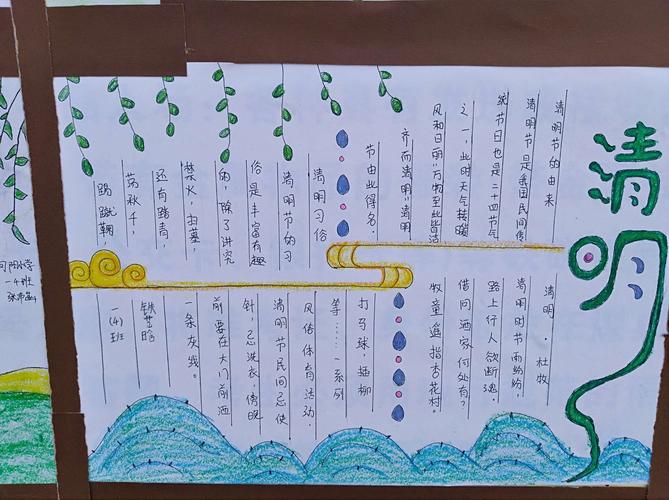 清明
清明节的由来
清明节是我国民间传
统节日也是二十四节气
之一，此时天气转暖
风和日丽"万物至此皆洁
齐而清明"清明
节由此得名。
清明习俗
清明节的习
俗是丰富有趣
的，除了讲究
禁火，扫墓，
还有踏青，
荡秋千，
踢蹴鞠，
打马球 插柳
等……一系列
风俗体育活动。
清明节民间忌使
针，忌洗衣，傍晚
前要在大门前洒
一条灰线。
清明 · 杜牧
清明时节雨纷纷，
路上行人欲断魂。
借问酒家何处有？
牧童遥指杏花村。
一（4）班
小学
一4班